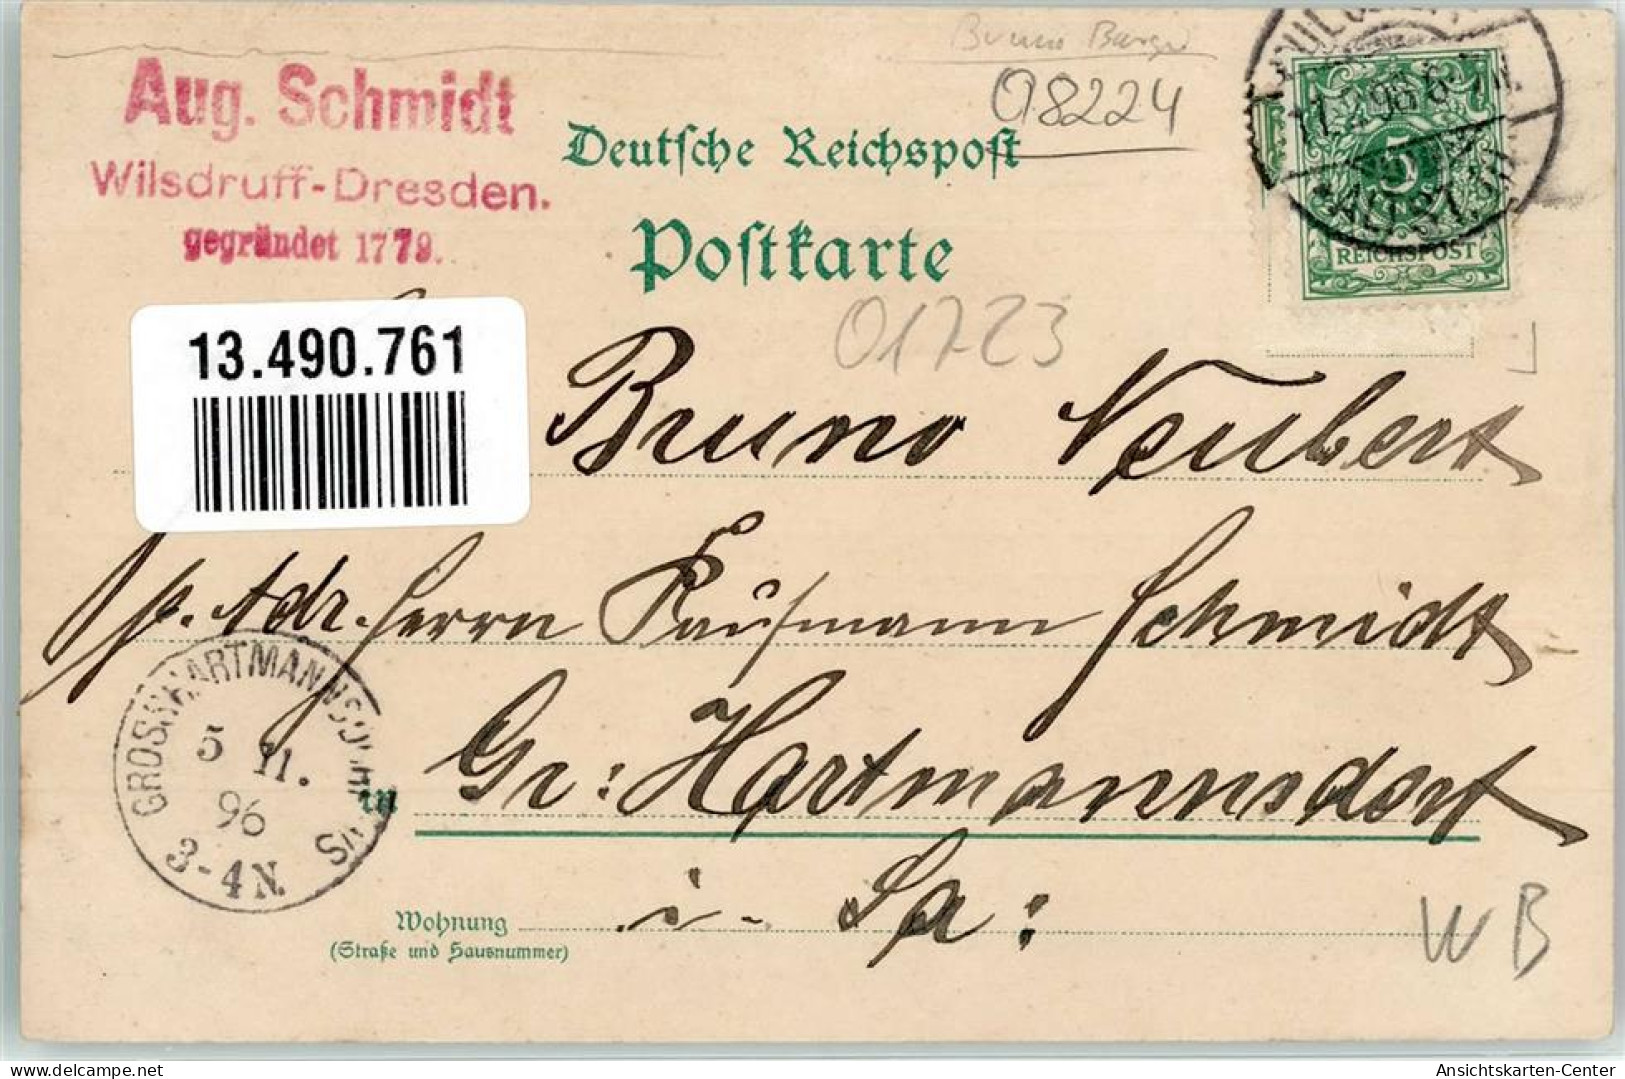 Bruno
08224
Aug. Schmidt
Wilsdruff-Dresden.
gegründet 1779.
Deutsche Reichspost
Postkarte
01723
5
REICHSPOST
13.490.761
Bruno Neubert
p. Adr. Herrn Kaufmann Schmidt
in Gr: Hartmannsdorf
i. Sa:
GROSSHARTMANNSDORF
5 11.
96
3-4 N.
Wohnung
(Straße und Hausnummer)
W B
Ansichtskarten-Center